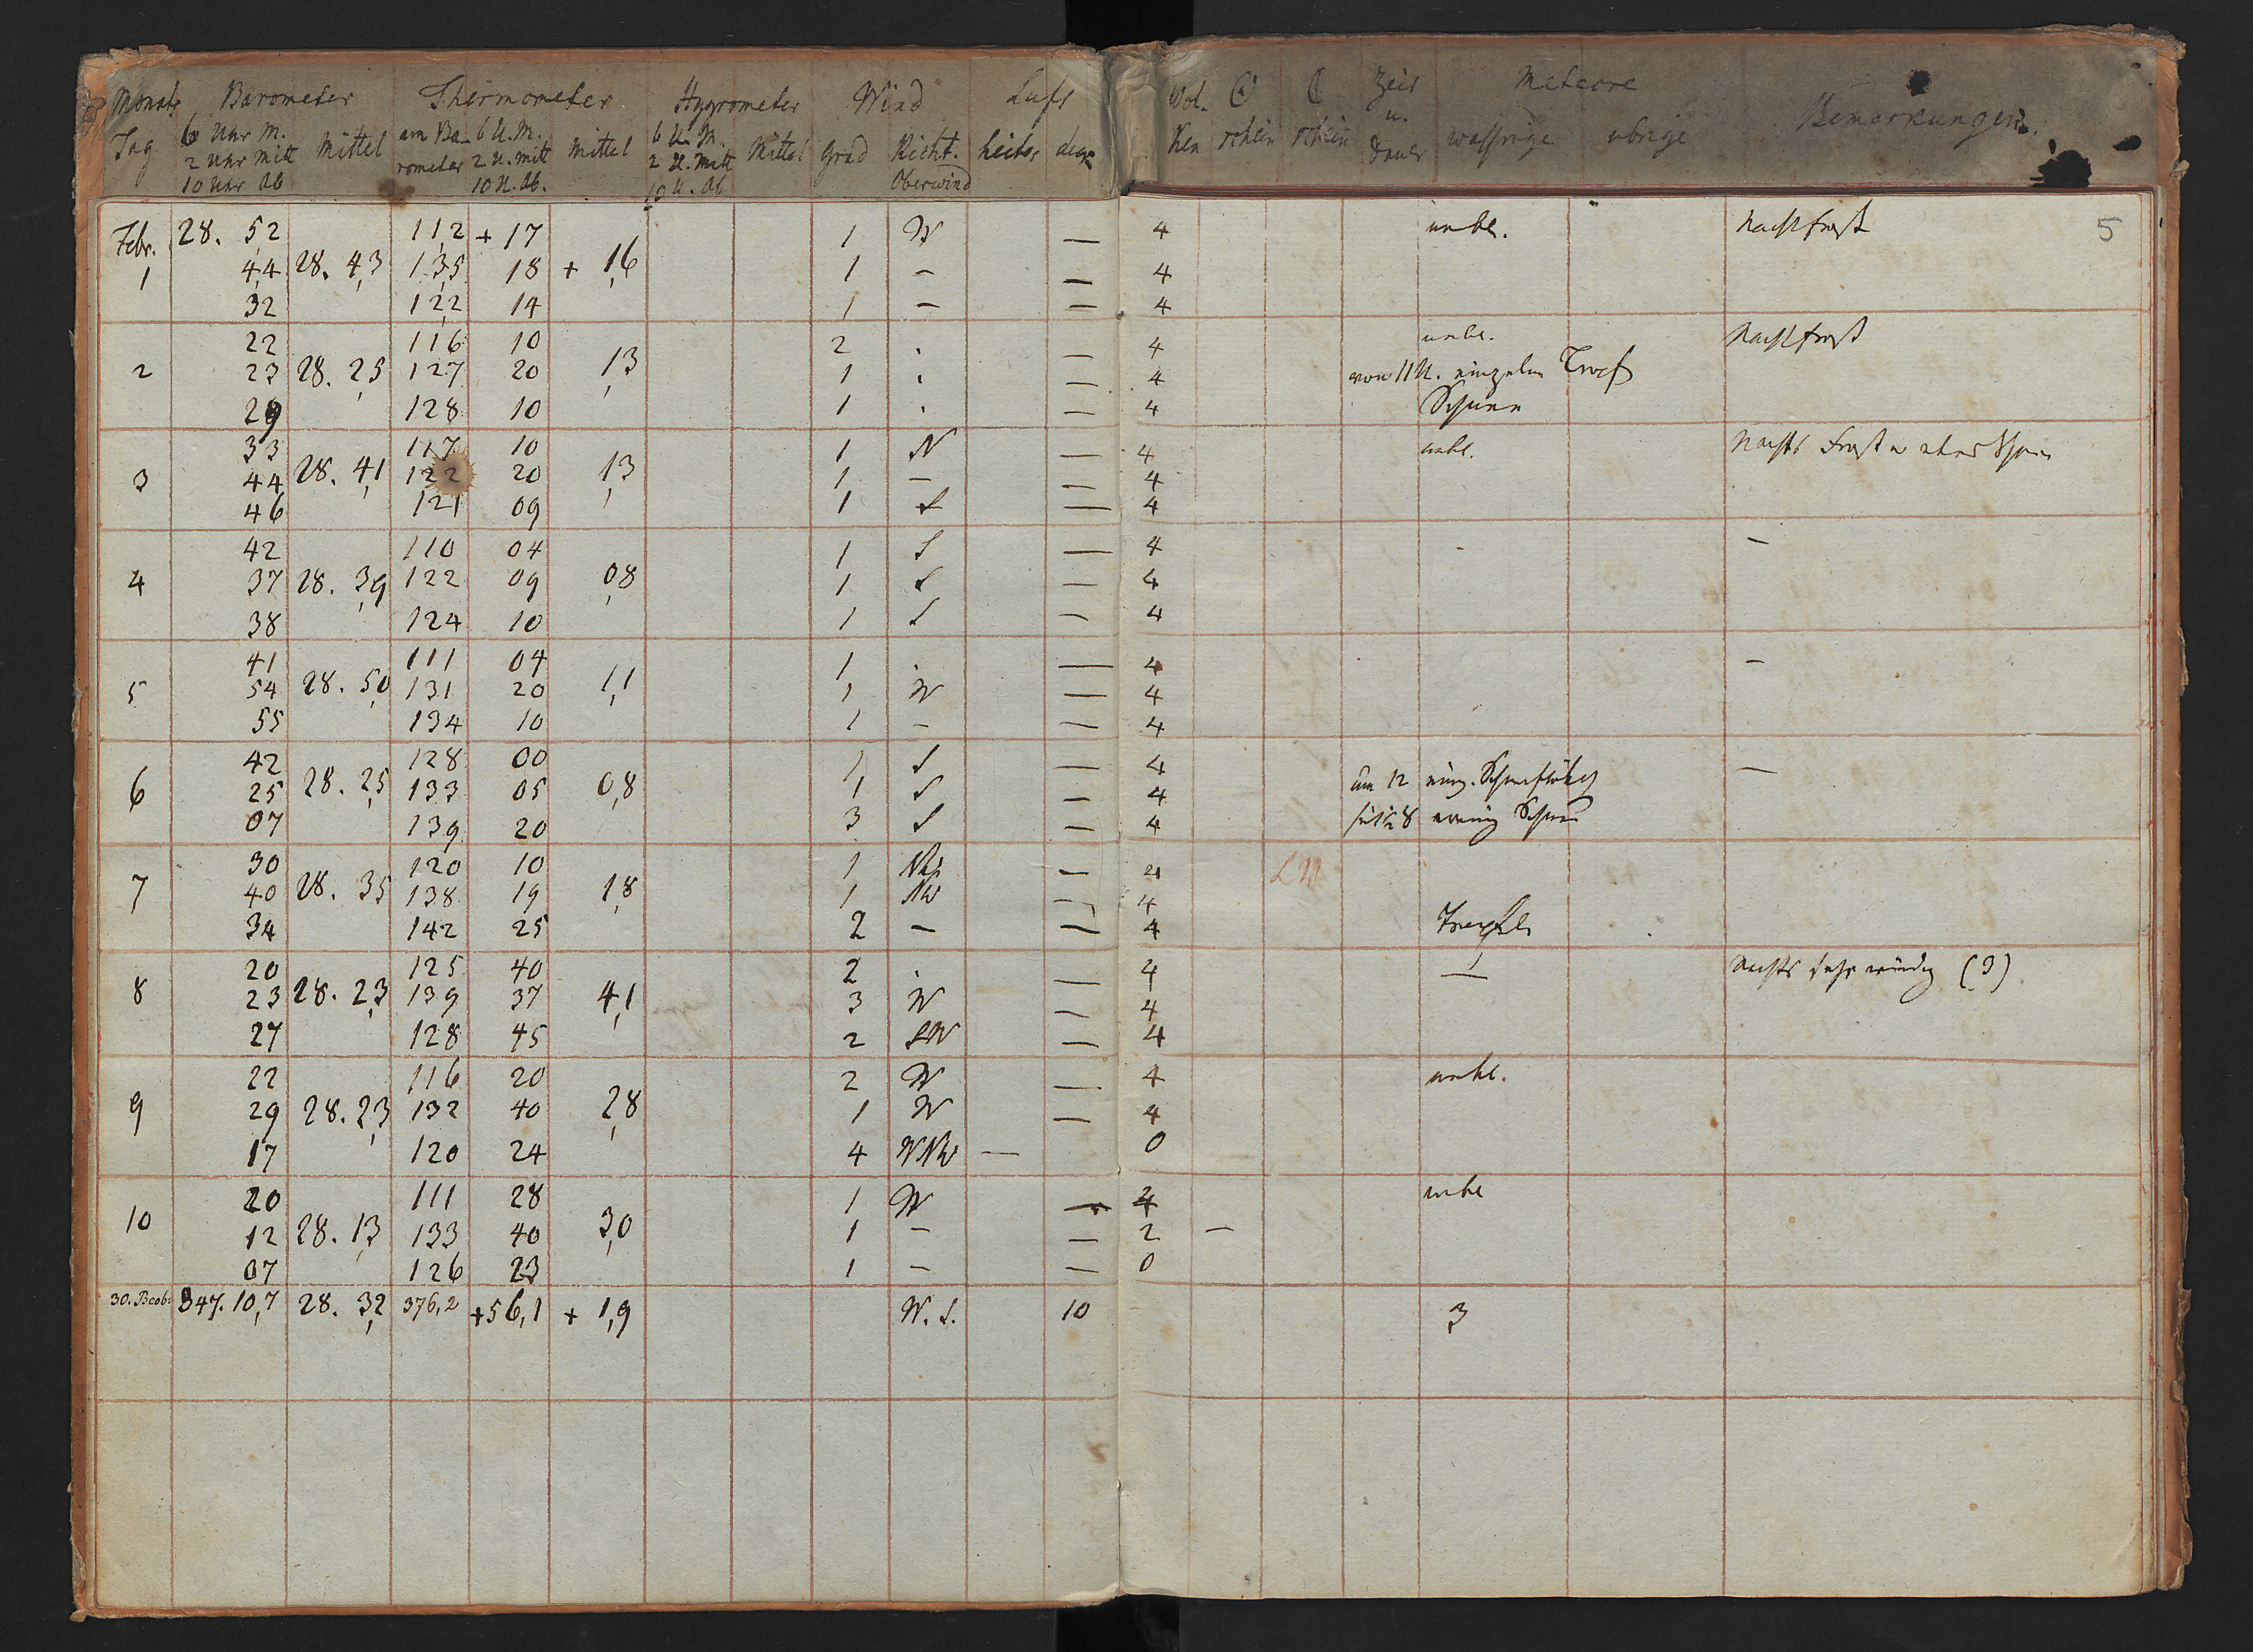 Monats Barometer Thermometer Hygrometer Wind Luft Wol- ☉ ☾ Zeit Meteore
Tag 6 Uhr M. Mittel am Ba- 6 U. M. Mittel 6 U. M. Mittel Grad Richt. heiter ken schein schein u. wassrige ubrige Bemerkungen.
2 Uhr Mitt rometer 2 U. Mitt 2 U. Mitt Dauer
10 Uhr Ab 10 U. Ab. 10 U. Ab Oberwind
5
Febr. 28. 52 112 + 17 1 W — 4 unbe. Nachtfrost
1 44 28. 4,3 135 18 + 1,6 1 – — 4
32 122 14 1 – — 4
22 116 10 2 . 4 unbe. Nachtfrost
2 23 28. 2,5 127 20 1,3 1 . — 4 von 11 U. einzelne Tropf
29 128 10 1 . — 4 Schnee
33 117 10 1 N — 4 unbe. Nachts Frost u etwas Schnee
3 44 28. 4,1 122 20 1,3 1 – — 4
46 121 09 1 S — 4
42 110 04 1 S — 4 - –
4 37 28. 3,9 122 09 0,8 1 S — 4
38 124 10 1 S — 4
41 111 04 1 . — 4 –
5 54 28. 5,0 131 20 1,1 1 W — 4
55 134 10 1 – — 4
42 128 00 1 S — 4
6 25 28. 2,5 133 05 0,8 1 S — 4 um 12 einz. —
07 139 20 3 S — 4 8 wenig Schnee
30 120 10 1 NW — 4 LM
7 40 28. 35 138 19 1,8 1 NW — 4
34 142 25 2 – — 4 Tropfeln
20 125 40 2 . — 4 — Nachts sehr windig (3)
8 23 28. 2,3 139 37 4,1 3 W — 4
27 128 45 2 SW — 4
22 116 20 2 W — 4 unbe.
9 29 28. 2,3 132 40 2,8 1 W — 4
17 120 24 4 WNW — 0
20 111 28 1 W — 4 unbe
10 12 28. 1,3 133 40 3,0 1 – — 2 –
07 126 23 1 – — 0
30. Beob. 847. 10,7 28. 3,2 376,2 +56,1 + 1,9 W. S. 10 3